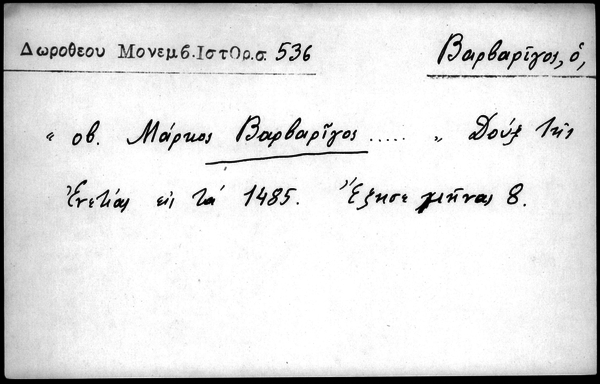 Δωροθεου Μονεμβ.ΙστΟρ.σ. 536
Βαρβαρῖγος, ὁ,
" οβ. Μάρκος Βαρβαρῖγος ..... " Δούξ τῆς
Ἐνετίας εἰς τά 1485. Ἔζησε μῆνας 8.